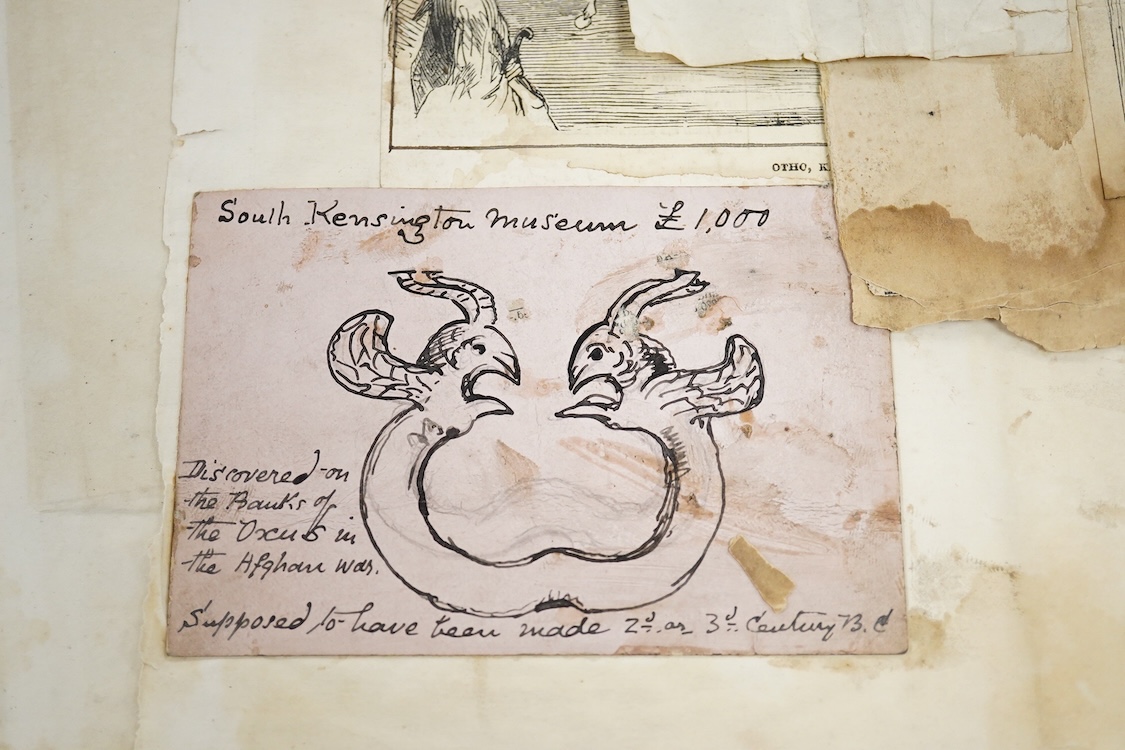 OTHO, K
South Kensington Museum £1,000
Discovered on
the Banks of
the Oxus in
the Afghan war.
Supposed to have been made 2d. or 3d. Century B.C